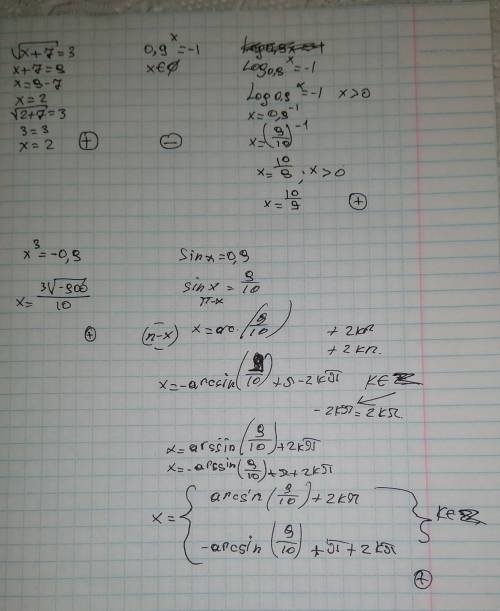 √x+7=3
x+7=9
x=9-7
x=2
√2+7=3
3=3
x=2 +
0,9^x=-1
x∈∅
−
Log0,9^x=-1
Log0,9^x=-1 x>0
x=0,9^-1
x=(9/10)^-1
x=10/9; x>0
x=10/9 +
x^3=-0,9
x=3√-900/10
+
sinx=0,9
sinx=9/10
π-x
(π-x) x=arc(9/10) +2kπ
+2kπ.
x=-arcsin(9/10)+π-2kπ K∈Z
-2kπ=2kπ.
x=arssin(9/10)+2kπ
x=-arssin(9/10)+π+2kπ
x={ arcsin(9/10)+2kπ
-arcsin(9/10)+π+2kπ } K∈Z
+